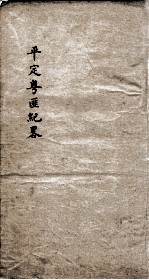 平定粤匪紀畧